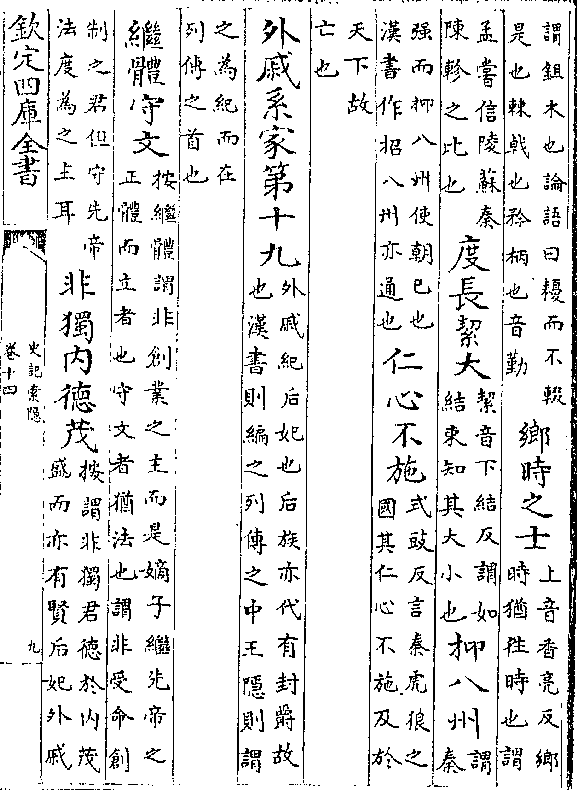 謂鉏木也論語曰耰而不輟
是也棘戟也矜柄也音勤
鄉時之士
上音香亮反鄉
時猶往時也謂
孟嘗信陵蘇秦
陳軫之比也
度長絜大
絜音下結反謂如
結束知其大小也
抑八州
謂
秦
强而抑八州使朝已也
漢書作招八州亦通也
仁心不施
式豉反言秦虎狼之
國其仁心不施及於
天下故
亡也
外戚系家第十九
外戚紀后妃也后族亦代有封爵故
也漢書則編之列傳之中王隱則謂
之為紀而在
列傳之首也
繼體守文
按繼體謂非創業之主而是嫡子繼先帝之
正體而立者也守文者猶法也謂非受命創
制之君但守先帝
法度為之主耳
非獨内德茂
按謂非獨君德於内茂
盛而亦有賢后妃外戚
欽定四庫全書
史記索隱
卷十四
九